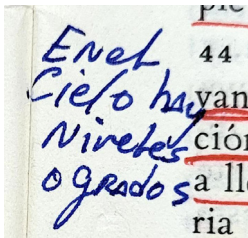 En el
Cielo hay
Niveles
o grados
44
van
ción
a ll
ria